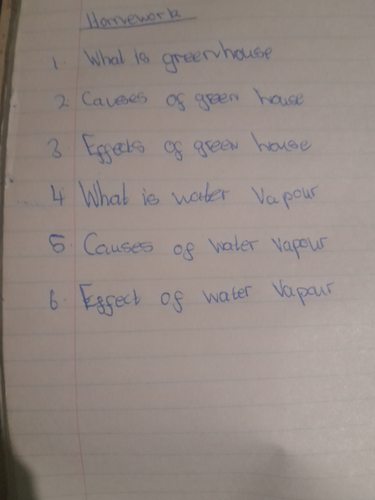 Homework
1. What is greenhouse
2 Causes of green house
3 Effects of green house
4 What is water Vapour
5 Causes of water vapour
6. Effect of water Vapour